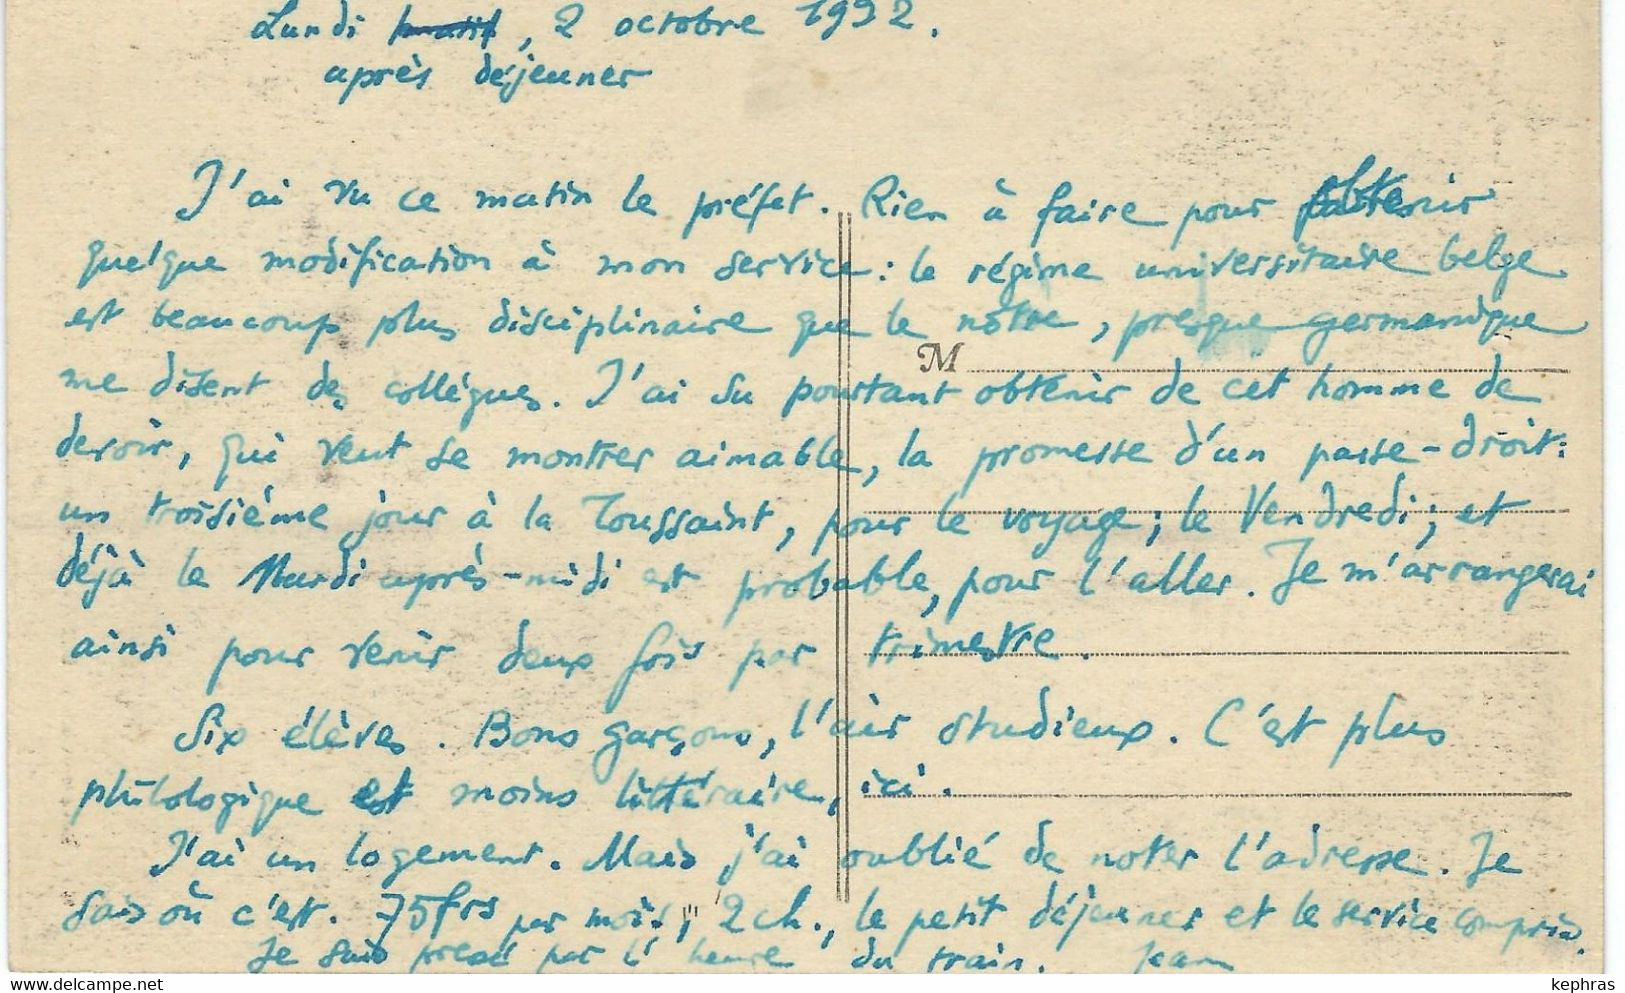 Lundi, 2 octobre 1992.
après déjeuner
J'ai vu ce matin le préfet. Rien à faire pour obtenir
quelque modification à mon service : le régime universitaire belge
est beaucoup plus disciplinaire que le nôtre, presque germanique
M
me disent des collègues. J'ai su pourtant obtenir de cet homme de
devoir, qui veut se montrer aimable, la promesse d'un passe-droit :
un troisième jour à la Toussaint, pour le voyage ; le Vendredi ; et
déjà le Mardi après-midi est probable, pour l'aller. Je m'arrangerai
ainsi pour venir deux fois par trimestre.
Six élèves. Bons garçons, l'air studieux. C'est plus
philologique et moins littéraire, ici.
J'ai un logement. Mais j'ai oublié de noter l'adresse. Je
sais où c'est. 75 frs par mois, 2 ch., le petit déjeuner et le service compris.
Je suis pressé par l'heure du train. Jean
www.delcampe.net
kephras